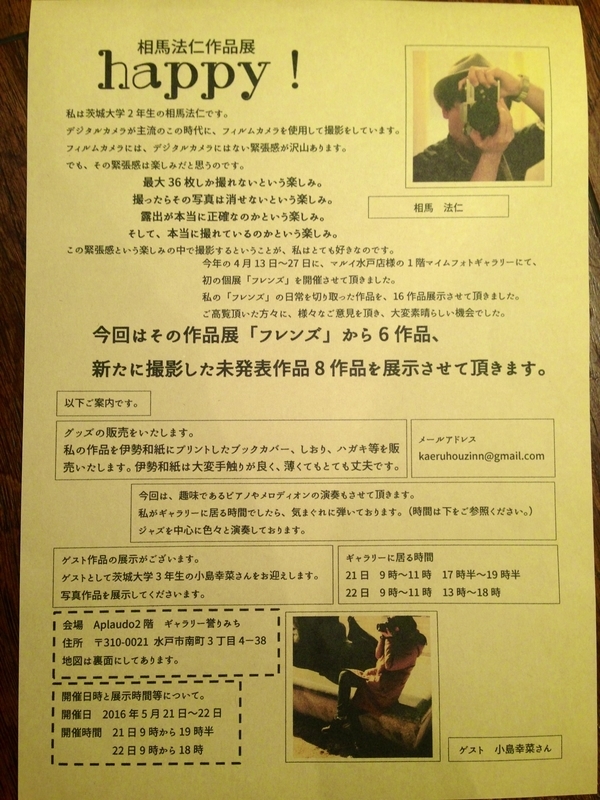 相馬法仁作品展
happy！
私は茨城大学2年生の相馬法仁です。
デジタルカメラが主流のこの時代に、フィルムカメラを使用して撮影をしています。
フィルムカメラには、デジタルカメラにはない緊張感が沢山あります。
でも、その緊張感は楽しみだと思うのです。
最大36枚しか撮れないという楽しみ。
撮ったらその写真は消せないという楽しみ。
露出が本当に正確なのかという楽しみ。
そして、本当に撮れているのかという楽しみ。
この緊張感という楽しみの中で撮影するということが、私はとても好きなのです。
相馬　法仁
今年の4月13日～27日に、マルイ水戸店様の1階マイムフォトギャラリーにて、
初の個展「フレンズ」を開催させて頂きました。
私の「フレンズ」の日常を切り取った作品を、16作品展示させて頂きました。
ご高覧頂いた方々に、様々なご意見を頂き、大変素晴らしい機会でした。
今回はその作品展「フレンズ」から6作品、
新たに撮影した未発表作品8作品を展示させて頂きます。
以下ご案内です。
グッズの販売をいたします。
私の作品を伊勢和紙にプリントしたブックカバー、しおり、ハガキ等を販
売いたします。伊勢和紙は大変手触りが良く、薄くてもとても丈夫です。
メールアドレス
kaeruhouzinn@gmail.com
今回は、趣味であるピアノやメロディオンの演奏もさせて頂きます。
私がギャラリーに居る時間でしたら、気まぐれに弾いております。（時間は下をご参照ください。）
ジャズを中心に色々と演奏しております。
ゲスト作品の展示がございます。
ゲストとして茨城大学3年生の小島幸菜さんをお迎えします。
写真作品を展示してくださいます。
ギャラリーに居る時間
21日　9時～11時　17時半～19時半
22日　9時～11時　13時～18時
会場　Aplaudo2階　ギャラリー誉りみち
住所　〒310-0021　水戸市南町3丁目4－38
地図は裏面にしてあります。
開催日時と展示時間等について。
開催日　2016年5月21日～22日
開催時間　21日9時から19時半
22日9時から18時
ゲスト　小島幸菜さん